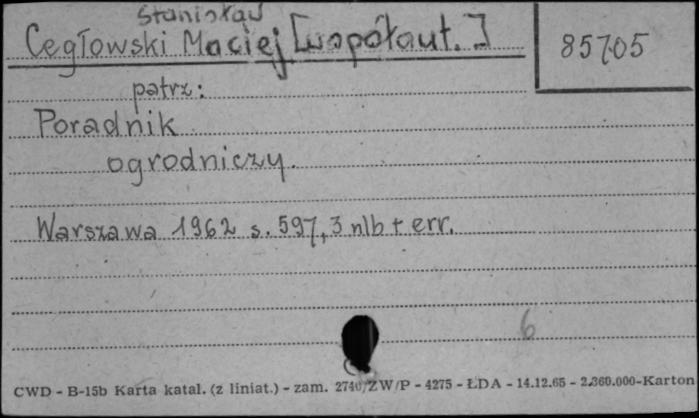 Stanisław
Cegłowski Maciej [współaut.]
85705
patrz:
Poradnik
ogrodniczy.
Warszawa 1962 s. 597, 3 nlb + err.
6
CWD - B-15b Karta katal. (z liniat.) - zam. 2740/ZW/P - 4275 - ŁDA - 14.12.65 - 2.360.000-Karton